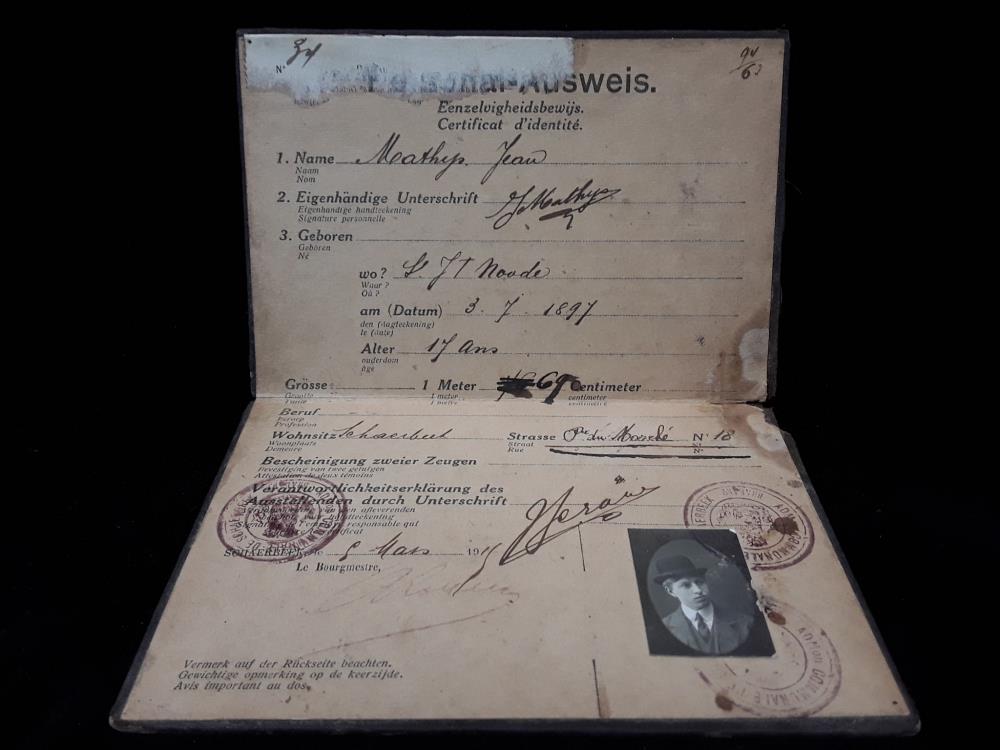 N° 34
94/63
Personal-Ausweis.
Eenzelvigheidsbewijs.
Certificat d'identité.
1. Name Mathys Jean
Naam
Nom
2. Eigenhändige Unterschrift J Mathys
Eigenhandige handteekening
Signature personnelle
3. Geboren
Geboren
Né
wo? St Jt Noode
Waar?
Où?
am (Datum) 3. 7. 1897
den (dagteekening)
le (date)
Alter 17 Ans
ouderdom
âge
Grösse 1 Meter 69 Centimeter
Grootte 1 meter centimeter
Taille 1 mètre centimètre
Beruf
Beroep
Profession
Wohnsitz Schaerbeek Strasse Pce du Marché N° 18
Woonplaats Straat N°
Demeure Rue N°
Bescheinigung zweier Zeugen
Bevestiging van twee getuigen
Attestation de deux témoins
Verantwortlichkeitserklärung des
Ausstellenden durch Unterschrift
afleverenden
handteekening
responsable qui
certificat
SCHAERBEEK, le 5 Mars 1915
Le Bourgmestre,
Vermerk auf der Rückseite beachten.
Gewichtige opmerking op de keerzijde.
Avis important au dos.